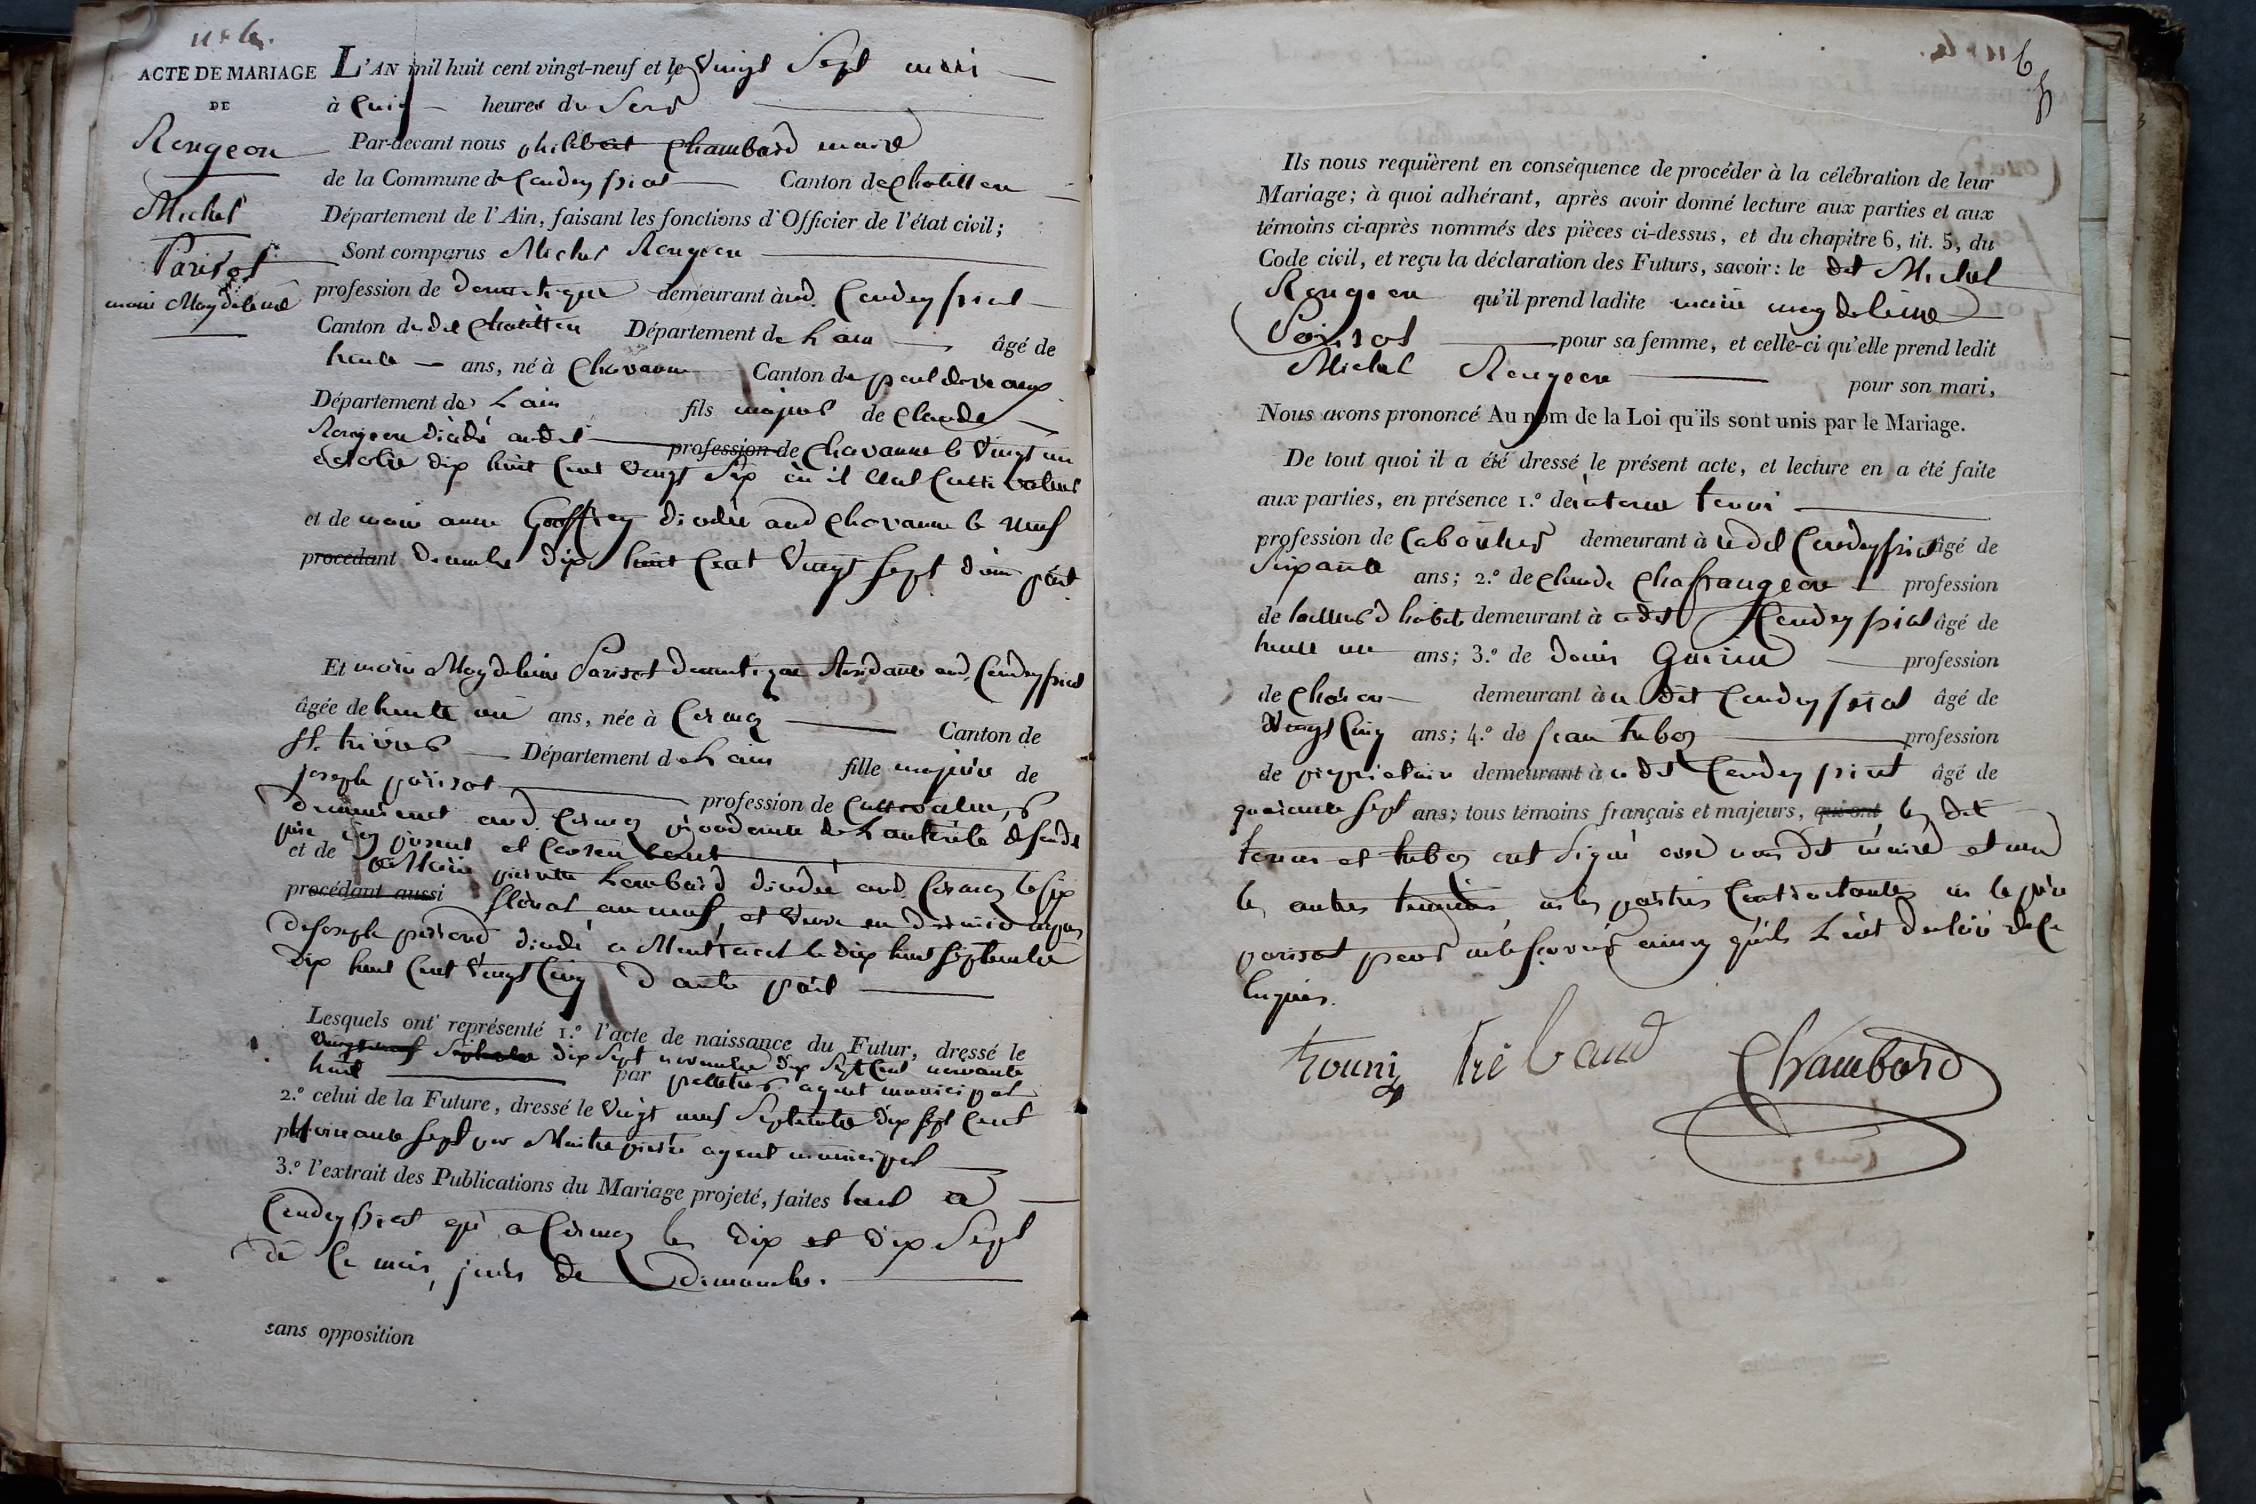 ACTE DE MARIAGE
DE
Rongeon
Michel
Parisot
marie Magdeleine
L'AN mil huit cent vingt-neuf et le Vingt Sept mai
à Cinq heures du Soir
Par-devant nous philibert Chambard maire
de la Commune de Condeyssiat Canton de Chatillon
Département de l'Ain, faisant les fonctions d'Officier de l'état civil;
Sont comparus Michel Rongeon
profession de domestique demeurant à ud. Condeyssiat
Canton dudit Chatillon Département de L'ain âgé de
trente ans, né à Chavanne Canton de pont de vaux
Département de L'ain fils majeur de Claude
Rongeon décédé audit profession de Chavanne le Vingt un
octobre dix huit Cent Vingt Six où il était Cultivateur
et de marie anne Goffrey décédée aud Chavanne le neuf
procédant décembre dix huit Cent Vingt Sept d'une part.
Et marie Magdeleine Parisot domestique Résidante aud. Condeyssiat
âgée de trente un ans, née à Cormoz Canton de
St. trivier Département de L'ain fille majeure de
joseph parisot profession de Cultivateur
demeurant aud. Cormoz procédante de L'autorité desondt
père icy présent et Consentant
et de Marie pierrette Lombard décédée aud. Cormoz le six
procédant aussi floréal an neuf, et Veuve en dernier
de joseph décédé a Montracol le dix huit Septembre
dix huit Cent Vingt Cinq d'autre part
Lesquels ont représenté 1.º l'acte de naissance du Futur, dressé le
dix Sept novembre dix Sept Cent nonante
huit par pelletier agent municipal
2.º celui de la Future, dressé le Vingt neuf Septembre dix Sept Cent
nonante Sept par Maitrepierre agent municipal
3.º l'extrait des Publications du Mariage projeté, faites tant a
Condeyssiat qu'a Cormoz les dix et dix Sept
de Ce mois, jours de Dimanche.
sans opposition
6
Ils nous requièrent en conséquence de procéder à la célébration de leur
Mariage; à quoi adhérant, après avoir donné lecture aux parties et aux
témoins ci-après nommés des pièces ci-dessus, et du chapitre 6, tit. 5, du
Code civil, et reçu la déclaration des Futurs, savoir: le dit Michel
Rongeon qu'il prend ladite marie magdeleine
Parisot pour sa femme, et celle-ci qu'elle prend ledit
Michel Rongeon pour son mari,
Nous avons prononcé Au nom de la Loi qu'ils sont unis par le Mariage.
De tout quoi il a été dressé le présent acte, et lecture en a été faite
aux parties, en présence 1.º de
profession de Cabaretier demeurant à udit Condeyssiat âgé de
Soixante ans; 2.º de Claude Chaffrangeon profession
de tailleur d'habits demeurant à udit Condeyssiat âgé de
trente un ans; 3.º de denis Guérin profession
de Charon demeurant à u dit Condeyssiat âgé de
Vingt Cinq ans; 4.º de jean profession
de propriétaire demeurant à udit Condeyssiat âgé de
quarante Sept ans; tous témoins français et majeurs, qui ont les dit
et ont Signé avec nous dit maire et non
les autres témoins, ni les parties Contractantes ni le père
parisot pour ne le Savoir ainsy qu'ils L'ont déclaré de Ce
Enquis.
Chambard